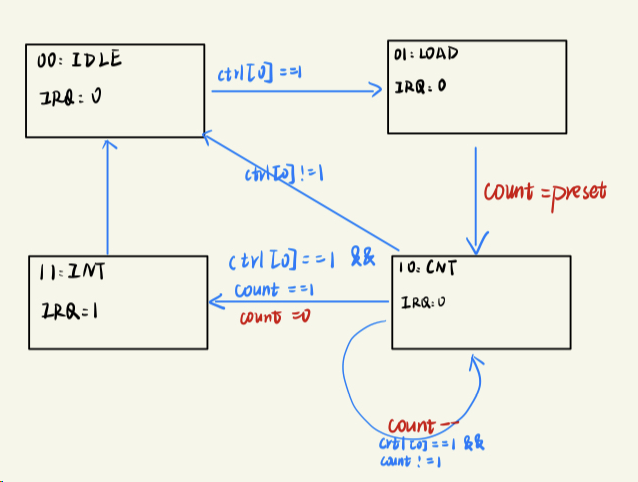 00: IDLE
IRQ: 0
ctrl[0]==1
01: LOAD
IRQ: 0
ctrl[0]!=1
count=preset
11: INT
IRQ=1
ctrl[0]==1 &&
count==1
count=0
10: CNT
IRQ:0
count--
crtl[0]==1 &&
count!=1